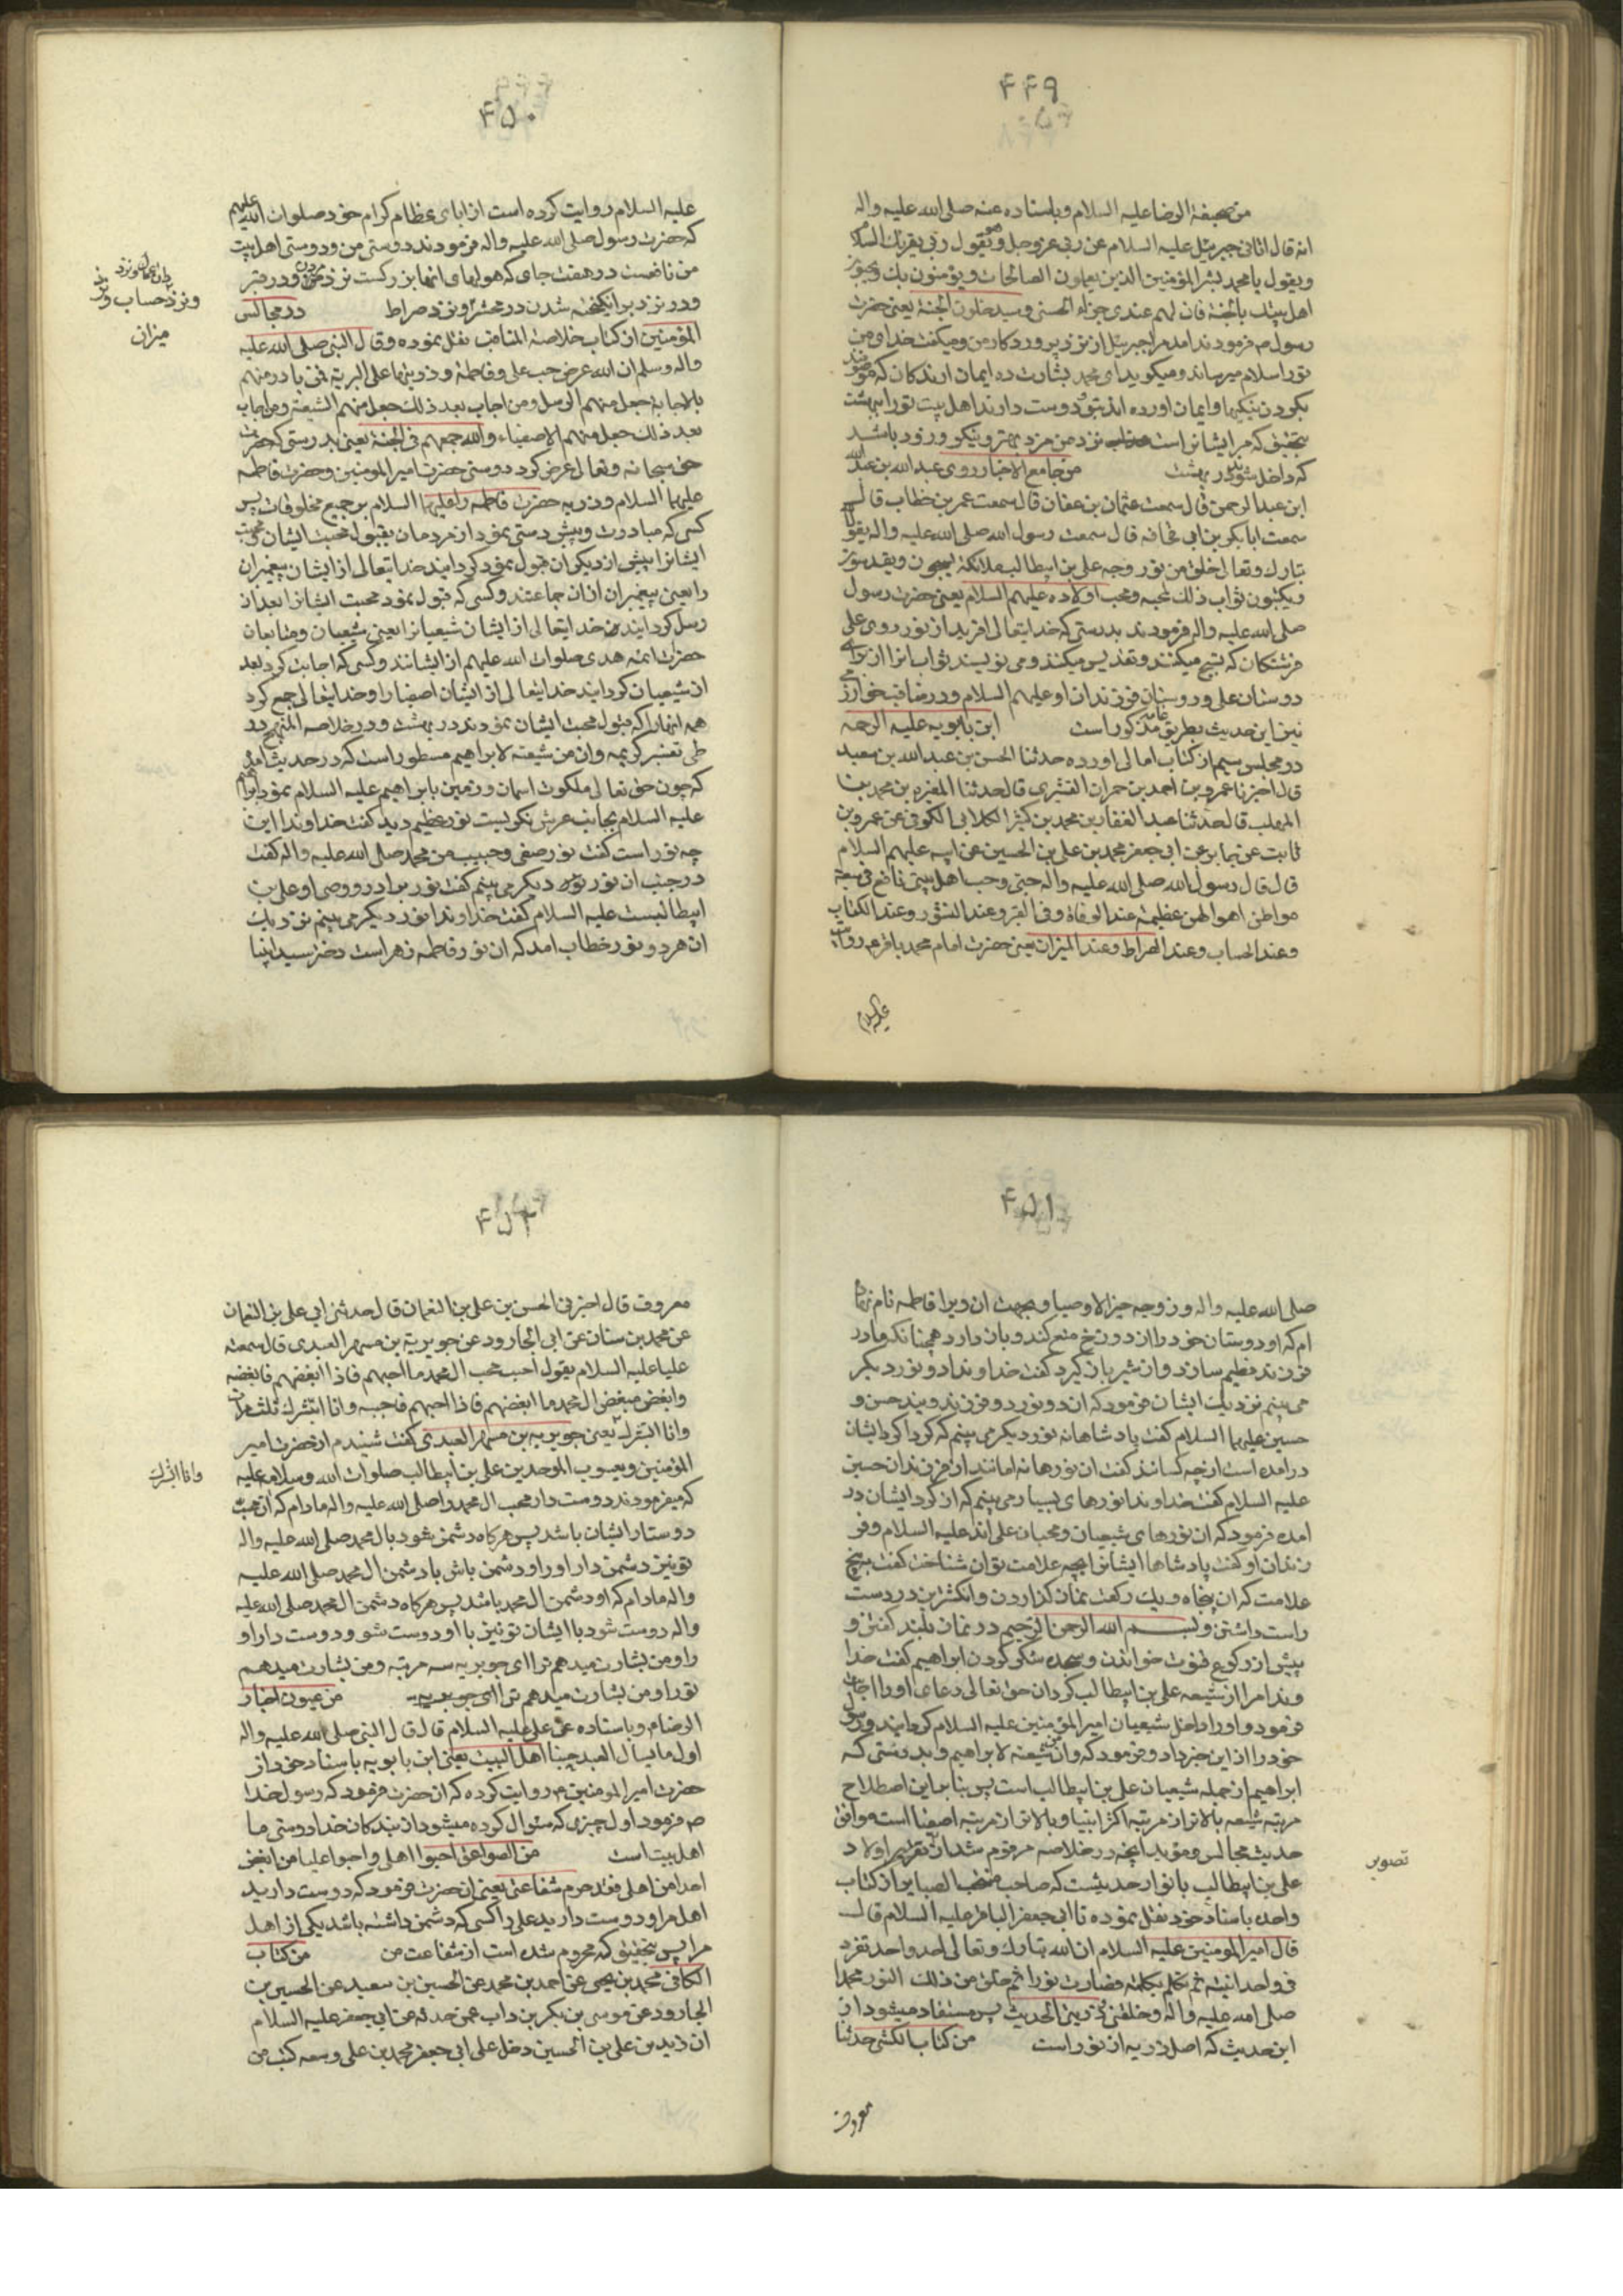 ۴۴۹
من صحیفة الرضا علیه السلام وباسناده عنه صلی الله علیه واله
انه قال اتانی جبرئیل علیه السلام عن ربی عزوجل وهو یقول ربی یقرئک السلام
ویقول یا محمد بشر المؤمنین الذین یعملون الصالحات ویؤمنون بک
اهل بیتک بالجنة فان لهم عندی جزاء الحسنی وسیدخلون الجنة یعنی حضرت
رسول ص فرمودند امد مرا جبرئیل از نزد پروردکار من ومیکفت خدای من
تورا سلام میرساند ومیکوید ای محمد بشارت ده ایمان ارندکان که
بکردن نیکیها وایمان اورده اند بتو ودوست دارند اهل بیت تورا ببهشت
بتحقیق که مر ایشانراست نزد من مزد بهتر ونیکو وزود باشد
که داخل شوند در بهشت من جامع الاخبار روی عبد الله بن عبد الله
ابن عبد الرحمن قال سمعت عثمان بن عفان قال سمعت عمر بن خطاب قال
سمعت ابابکر بن ابی قحافه قال سمعت رسول الله صلی الله علیه واله یقول
تبارک وتعالی خلق من نور وجه علی بن ابیطالب ملائکة یسبحون ویقدسون
ویکتبون ثواب ذلک لمحبه ومحب اولاده علیهم السلام یعنی حضرت رسول
صلی الله علیه واله فرمودند بدرستی که خدایتعالی افرید از نور روی علی
فرشتکان که تسبیح میکنند وتقدیس میکنند ومی نویسند ثواب انرا از برای
دوستان علی ودوستان فرزندان او علیهم السلام ودر مناقب خوارزمی
نیز این حدیث بطریق عامه مذکور است ابن بابویه علیه الرحمه
در مجلس سیم از کتاب امالی اورده حدثنا الحسن بن عبد الله بن سعید
قال اخبرنا عمرو بن احمد بن حمران القشیری قال حدثنا المغیره بن محمد بن
المهلب قال حدثنا عبد الغفار بن محمد بن کثیر الکلابی الکوفی عن عمرو بن
ثابت عن جابر عن ابی جعفر محمد بن علی بن الحسین عن ابیه علیهم السلام
قال قال رسول الله صلی الله علیه واله حبی وحب اهل بیتی نافع فی سبعة
مواطن اهوالهن عظیمة عند الوفاة وفی القبر وعند النشور وعند الکتاب
وعند الحساب وعند الصراط وعند المیزان یعنی حضرت امام محمد باقر
علیه السلام
۴۵۰
علیه السلام روایت کرده است از ابای عظام کرام خود صلوات الله علیهم
که حضرت رسول صلی الله علیه واله فرمودند دوستی من ودوستی اهل بیت
من نافعست در هفت جای که هولهای انها بزرکست نزد مردن ودر قبر
ودر نزد برانکیخته شدن در محشر ونزد صراط در مجالس
ونزد حساب ونزد
میزان
المؤمنین از کتاب خلاصة المناقب نقل نموده وقال النبی صلی الله علیه
واله وسلم ان الله عرض حب علی وفاطمة وذریتها علی البریة فمن بادر منهم
بالاجابة جعل منهم الرسل ومن اجاب بعد ذلک جعل منهم الشیعة ومن اجاب
بعد ذلک جعل منهم الاصفیاء والله جمعهم فی الجنة یعنی بدرستی که حضرت
حق سبحانه وتعالی عرض کرد دوستی حضرت امیر المومنین وحضرت فاطمه
علیهما السلام وذریه حضرت فاطمه را علیها السلام بر جمیع مخلوقات پس
کسی که مبادرت وپیش دستی نمود از مردمان بقبول محبت ایشان
ایشانرا پیش از دیکران قبول نمود کردانید خدایتعالی از ایشان پیغمبران
را یعنی پیغمبران از ان جماعتند وکسی که قبول نمود محبت ایشانرا بعد از
رسل کردانید خدایتعالی از ایشان شیعیانرا یعنی شیعیان ومتابعان
حضرات ائمه هدی صلوات الله علیهم از ایشانند وکسی که اجابت کرد بعد
از شیعیان کردانید خدایتعالی از ایشان اصفیا را وخدایتعالی جمع کرد
همه انهارا که قبول محبت ایشان نمودند در بهشت ودر خلاصه المنهج در
طی تفسیر کریمه وان من شیعته لابراهیم مسطور است که در حدیث امده
که چون حق تعالی ملکوت اسمان وزمین بابراهیم علیه السلام نمود ابراهیم
علیه السلام بجانب عرش نکریست نور عظیم دید کفت خداوندا این
چه نور است کفت نور صفی وحبیب من محمد صلی الله علیه واله کفت
در جنب ان نور نور دیکر می بینم کفت نور برادر ووصی او علی بن
ابیطالبست علیه السلام کفت خداوندا نور دیکر می بینم نزدیک
ان هر دو نور خطاب امد که ان نور فاطمه زهراست دختر سید انبیا
۴۵۱
صلی الله علیه واله وزوجه خیر الاوصیا وبجهت ان ویرا فاطمه نام نهاده
ام که او دوستان خود را از دوزخ منع کند وباز دارد همچنانکه مادر
فرزند فطیم سازد واز شیر باز کیرد کفت خداوندا دو نور دیکر
می بینم نزدیک ایشان فرمود که ان دو نور دو فرزند ویند حسن و
حسین علیهما السلام کفت پادشاها نه نور دیکر می بینم که کرداکرد ایشان
در امده است از چه کسانند کفت ان نورها نه امامند از فرزندان حسین
علیه السلام کفت خداوندا نورهای بسیار می بینم که از کرد ایشان در
امده فرمود که ان نورهای شیعیان ومحبان علی اند علیه السلام وفر
زندان او کفت پادشاها ایشانرا بچه علامت توان شناخت کفت به پنج
علامت که ان پنجاه ویک رکعت نماز کذاردن وانکشترین در دست
راست داشتن وبسم الله الرحمن الرحیم در نماز بلند کفتن و
پیش از رکوع قنوت خواندن وسجده شکر کردن ابراهیم کفت خدا
وندا مرا از شیعه علی بن ابیطالب کردان حق تعالی دعای اورا اجابت
فرمود واورا داخل شیعیان امیر المؤمنین علیه السلام کردانید ورسول
خود را از این خبر داد وفرمود که وان من شیعته لابراهیم وبدرستی که
ابراهیم از جمله شیعیان علی بن ابیطالب است پس بنابر این اصطلاح
مرتبه شیعه بالاتر از مرتبه اکثر انبیا وبالاتر از مرتبه اصفیا است موافق
حدیث مجالس ومؤید انچه در خلاصه مرقوم شد از اولاد
تصویر
علی بن ابیطالب بانوار حدیثیست که صاحب منتخب البصایر از کتاب
واحده باسناد خود نقل نموده تا ابی جعفر الباقر علیه السلام قال
قال امیر المومنین علیه السلام ان الله تبارک وتعالی احد واحد تفرد
فی وحدانیته ثم تکلم بکلمة فصارت نورا ثم خلق من ذلک النور محمدا
صلی الله علیه واله وخلقنی وذریتی الحدیث پس مستفاد میشود از
این حدیث که اصل ذریه از نور است من کتاب الکشی حدثنا
معروف
۴۵۲
معروف قال اخبرنی الحسن بن علی بن النعمان قال حدثنی ابی علی بن النعمان
عن محمد بن سنان عن ابی الجارود عن جویریة بن مسهر العبدی قال سمعت
علیا علیه السلام یقول احبب محب ال محمد ما احبهم فاذا ابغضهم فابغضه
وابغض مبغض ال محمد ما ابغضهم فاذا احبهم فاحببه وانا ابشرک ثلث مرات
وانا ابشرک یعنی جویریه بن مسهر العبدی کفت شنیدم از حضرت امیر
وانا ابشرک
المؤمنین ویعسوب الموحدین علی بن ابیطالب صلوات الله وسلامه علیه
که میفرمودند دوست دار محب ال محمد را صلی الله علیه واله مادام که ان محب
دوستار ایشان باشد پس هر کاه دشمن شود بال محمد صلی الله علیه واله
تو نیز دشمن دار اورا ودشمن باش با دشمن ال محمد صلی الله علیه
واله مادام که او دشمن ال محمد باشد پس هر کاه دشمن ال محمد صلی الله علیه
واله دوست شود با ایشان تو نیز با او دوست شو ودوست دار او
را ومن بشارت میدهم ترا ای جویریه سه مرتبه ومن بشارت میدهم
تورا ومن بشارت میدهم ترا ای جویریه من عیون اخبار
الرضا م وباسناده عن علی علیه السلام قال قال النبی صلی الله علیه واله
اول ما یسال العبد حبنا اهل البیت یعنی ابن بابویه باسناد خود از
حضرت امیر المومنین م روایت کرده که ان حضرت فرمود که رسول خدا
ص فرمود اول چیزی که سئوال کرده میشود از بندکان خدا دوستی ما
اهل بیت است من الصواعق احبوا اهلی واحبوا علیا من ابغض
احدا من اهلی فقد حرم شفاعتی یعنی ان حضرت فرمود که دوست دارید
اهل مرا ودوست دارید علی را کسی که دشمن داشته باشد یکی از اهل
مرا پس بتحقیق که محروم شده است از شفاعت من من کتاب
الکافی محمد بن یحیی عن احمد بن محمد عن الحسین بن سعید عن الحسین بن
الجارود عن موسی بن بکر بن داب عمن حدثه عن ابی جعفر علیه السلام
ان زید بن علی بن الحسین دخل علی ابی جعفر محمد بن علی ومعه کتب من